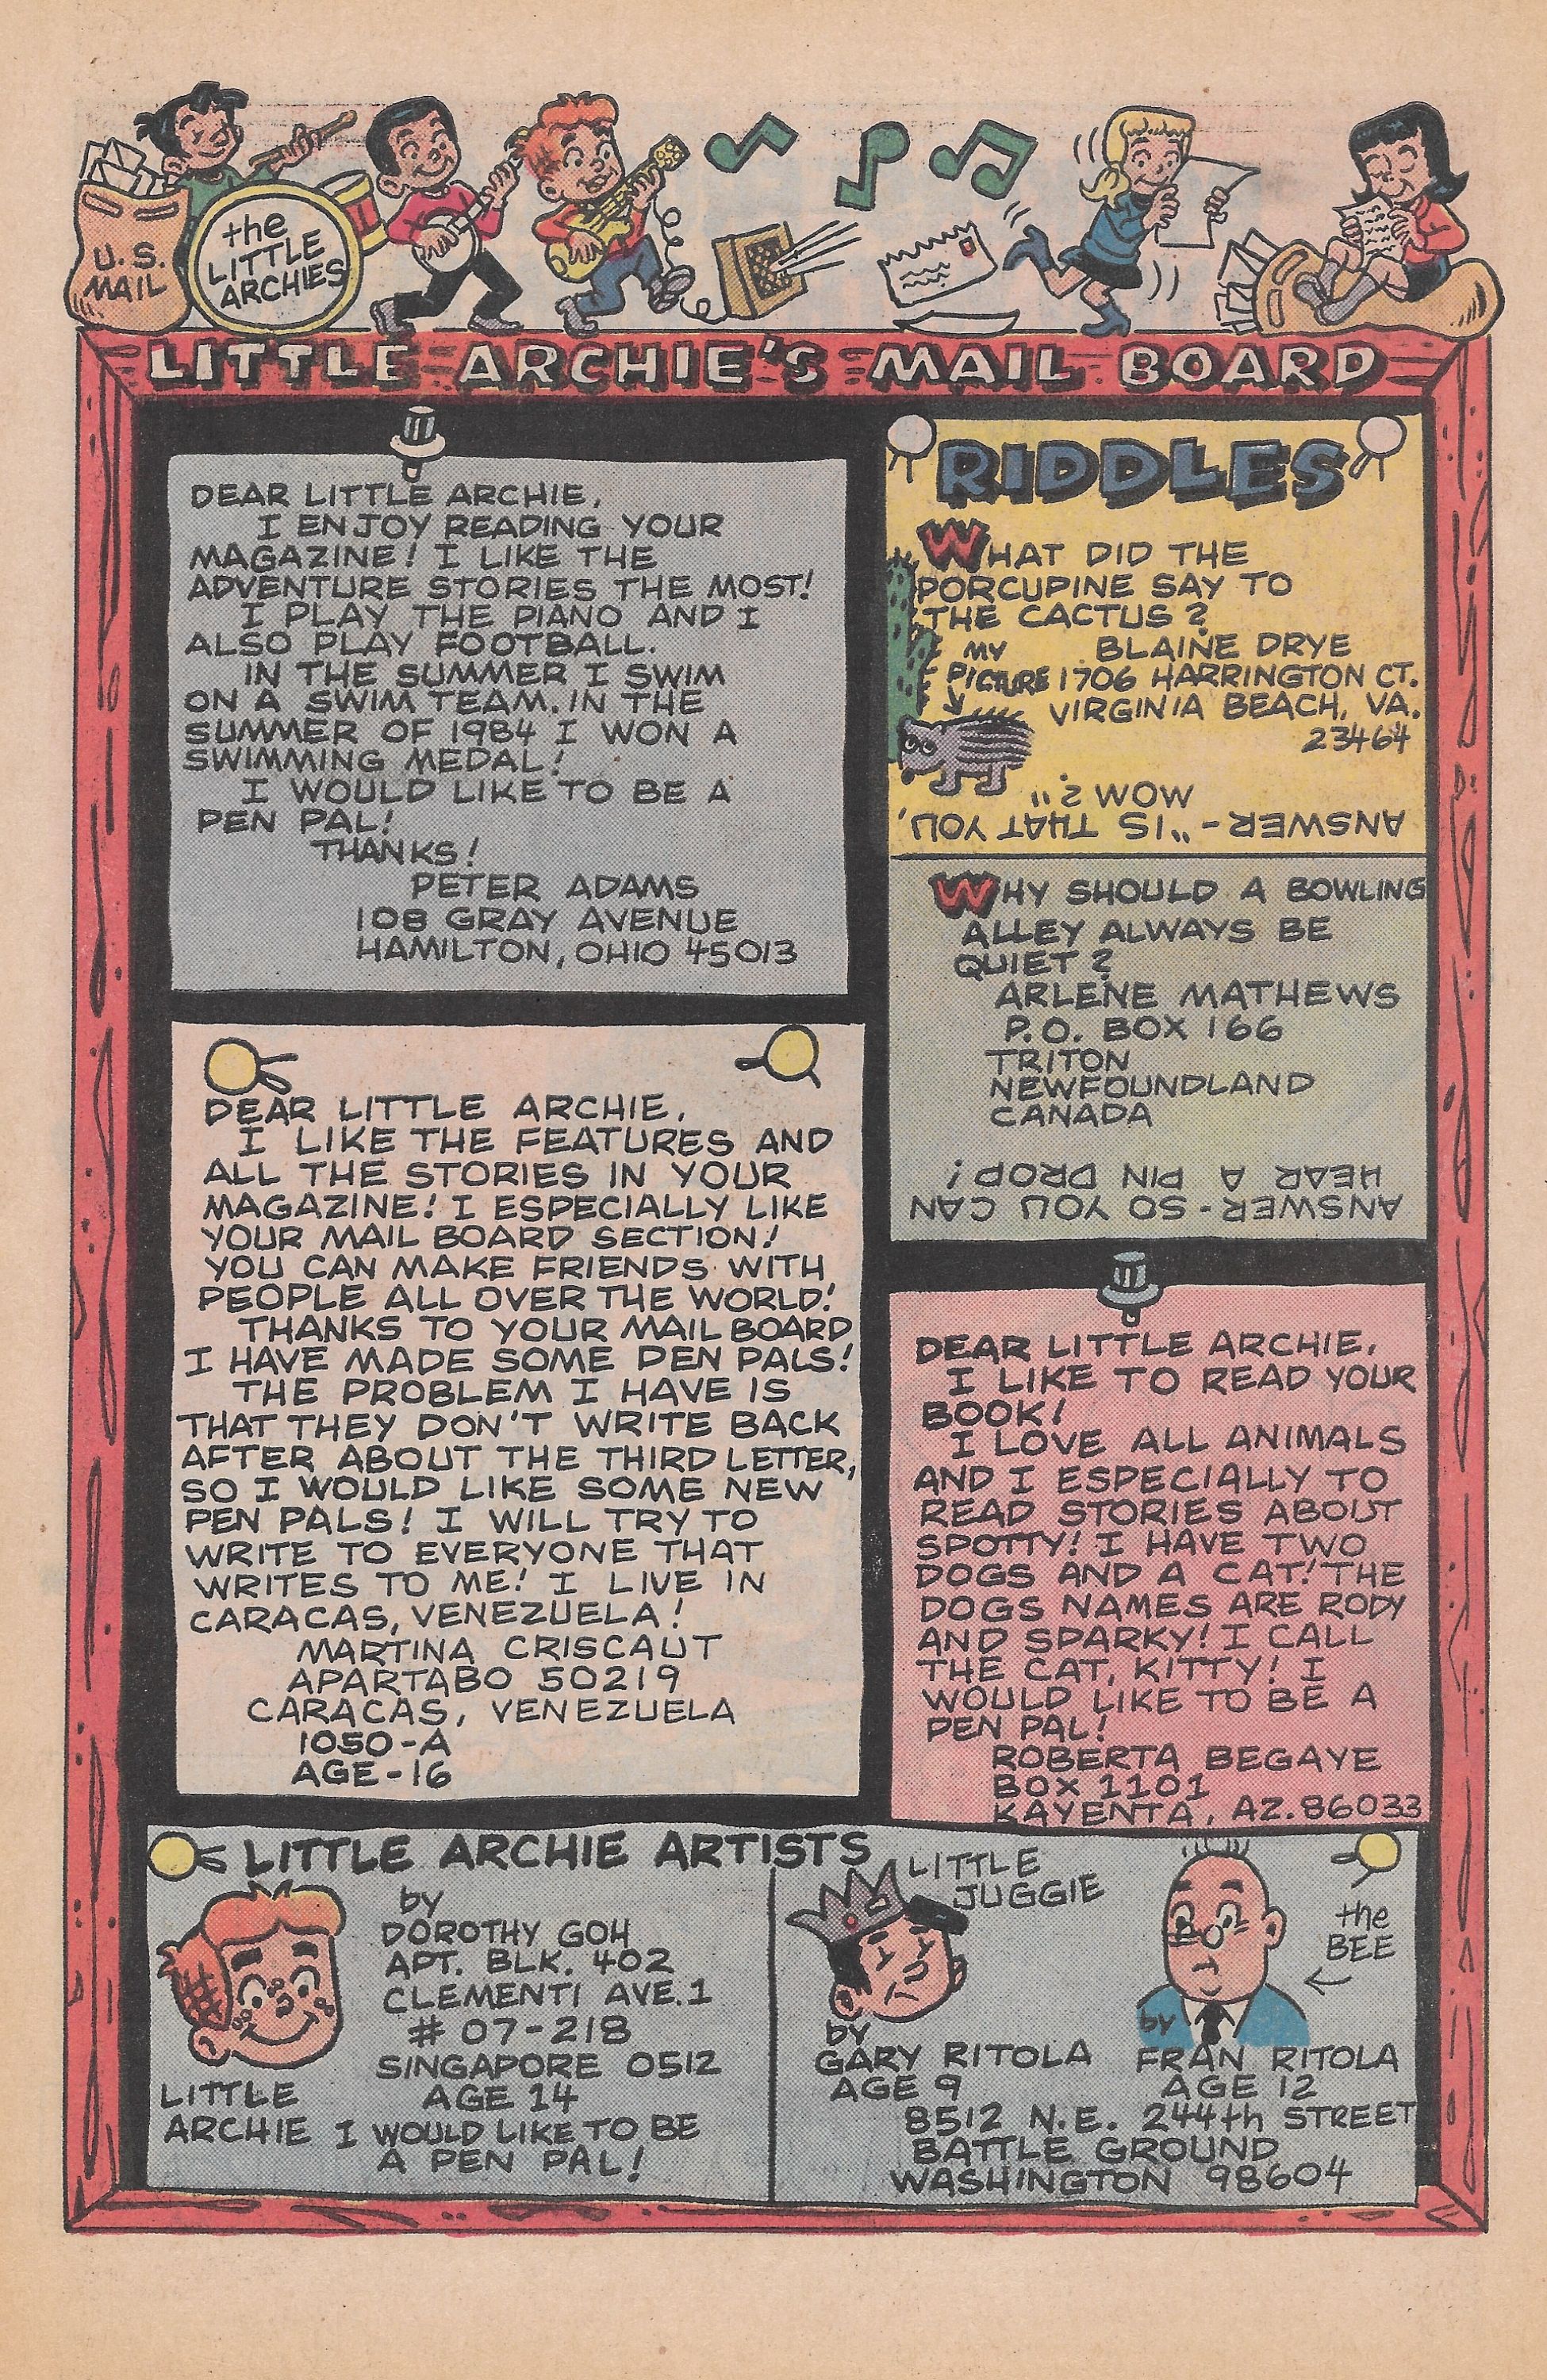 U.S.
MAIL
the
LITTLE
ARCHIES
LITTLE ARCHIE'S MAIL BOARD
DEAR LITTLE ARCHIE,
I ENJOY READING YOUR
MAGAZINE! I LIKE THE
ADVENTURE STORIES THE MOST!
I PLAY THE PIANO AND I
ALSO PLAY FOOTBALL.
IN THE SUMMER I SWIM
ON A SWIM TEAM. IN THE
SUMMER OF 1984 I WON A
SWIMMING MEDAL!
I WOULD LIKE TO BE A
PEN PAL!
THANKS!
PETER ADAMS
108 GRAY AVENUE
HAMILTON, OHIO 45013
DEAR LITTLE ARCHIE,
I LIKE THE FEATURES AND
ALL THE STORIES IN YOUR
MAGAZINE! I ESPECIALLY LIKE
YOUR MAIL BOARD SECTION!
YOU CAN MAKE FRIENDS WITH
PEOPLE ALL OVER THE WORLD!
THANKS TO YOUR MAIL BOARD
I HAVE MADE SOME PEN PALS!
THE PROBLEM I HAVE IS
THAT THEY DON'T WRITE BACK
AFTER ABOUT THE THIRD LETTER,
SO I WOULD LIKE SOME NEW
PEN PALS! I WILL TRY TO
WRITE TO EVERYONE THAT
WRITES TO ME! I LIVE IN
CARACAS, VENEZUELA!
MARTINA CRISCAUT
APARTABO 50219
CARACAS, VENEZUELA
1050-A
AGE-16
RIDDLES
WHAT DID THE
PORCUPINE SAY TO
THE CACTUS?
MY
PICTURE
BLAINE DRYE
1706 HARRINGTON CT.
VIRGINIA BEACH, VA.
23464
ANSWER-"IS THAT YOU,
MOM?"
WHY SHOULD A BOWLING
ALLEY ALWAYS BE
QUIET?
ARLENE MATHEWS
P.O. BOX 166
TRITON
NEWFOUNDLAND
CANADA
ANSWER-SO YOU CAN
HEAR A PIN DROP!
DEAR LITTLE ARCHIE,
I LIKE TO READ YOUR
BOOK!
I LOVE ALL ANIMALS
AND I ESPECIALLY TO
READ STORIES ABOUT
SPOTTY! I HAVE TWO
DOGS AND A CAT! THE
DOGS NAMES ARE RODY
AND SPARKY! I CALL
THE CAT, KITTY! I
WOULD LIKE TO BE A
PEN PAL!
ROBERTA BEGAYE
BOX 1101
KAYENTA, AZ. 86033
LITTLE ARCHIE ARTISTS
by
DOROTHY GOH
APT. BLK. 402
CLEMENTI AVE. 1
# 07-218
SINGAPORE 0512
AGE 14
LITTLE
ARCHIE
I WOULD LIKE TO BE
A PEN PAL!
LITTLE
JUGGIE
by
GARY RITOLA
AGE 9
the
BEE
by
FRAN RITOLA
AGE 12
8512 N.E. 244th STREET
BATTLE GROUND
WASHINGTON 98604